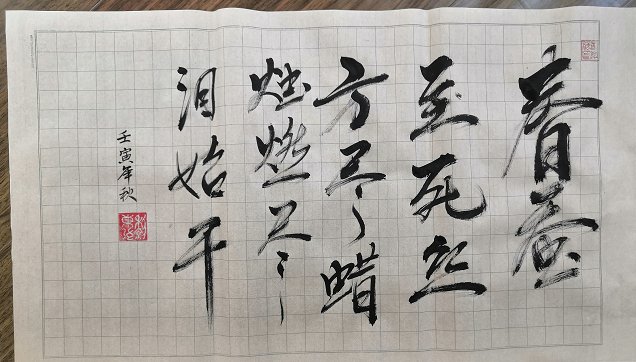 春蚕
至死丝
方尽蜡
烛燃尽
泪始干
壬寅年秋